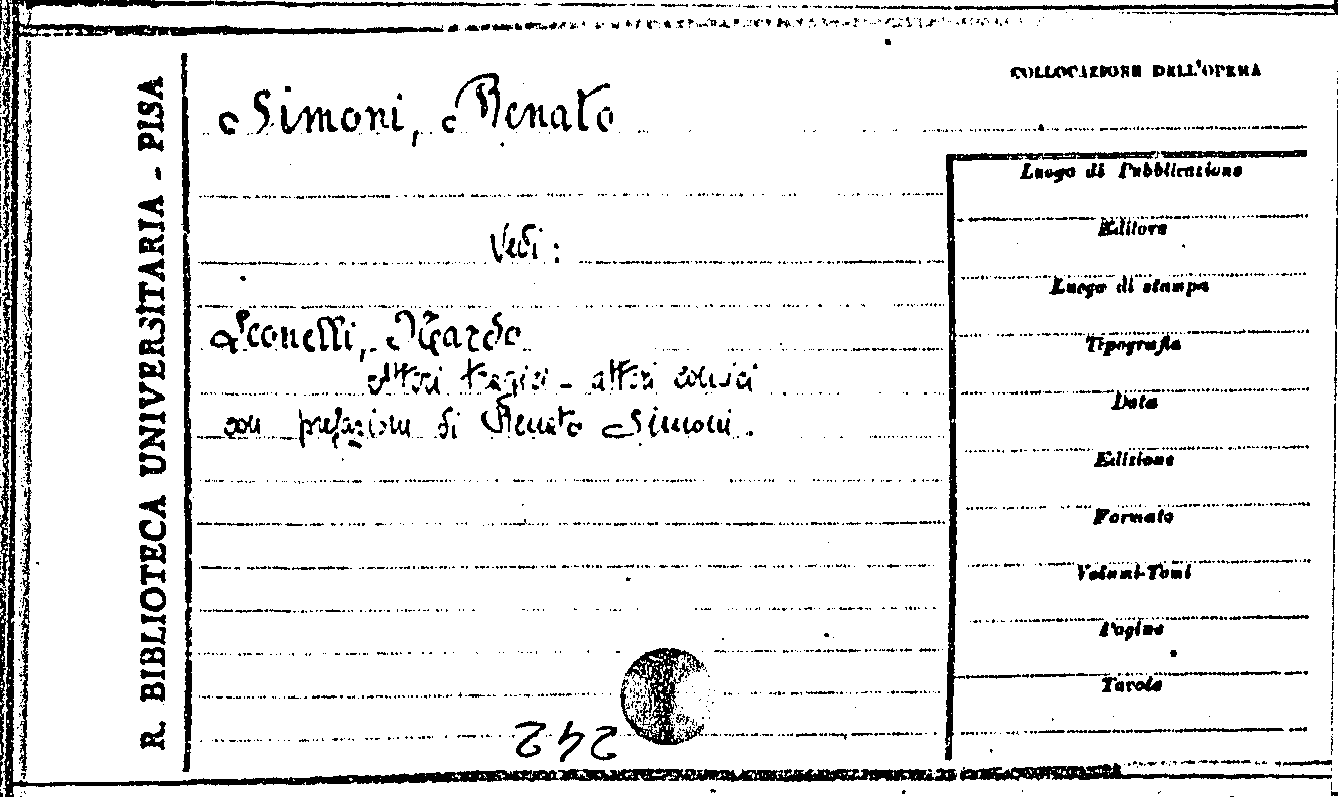 R. BIBLIOTECA UNIVERSITARIA - PISA
Simoni, Renato
Vedi:
Leonelli, Nardo
Attori tragici - attori comici
con prefazione di Renato Simoni.
242
COLLOCAZIONE DELL'OPERA
Luogo di Pubblicazione
Editore
Luogo di stampa
Tipografia
Data
Edizione
Formato
Volumi-Tomi
Pagine
Tavole